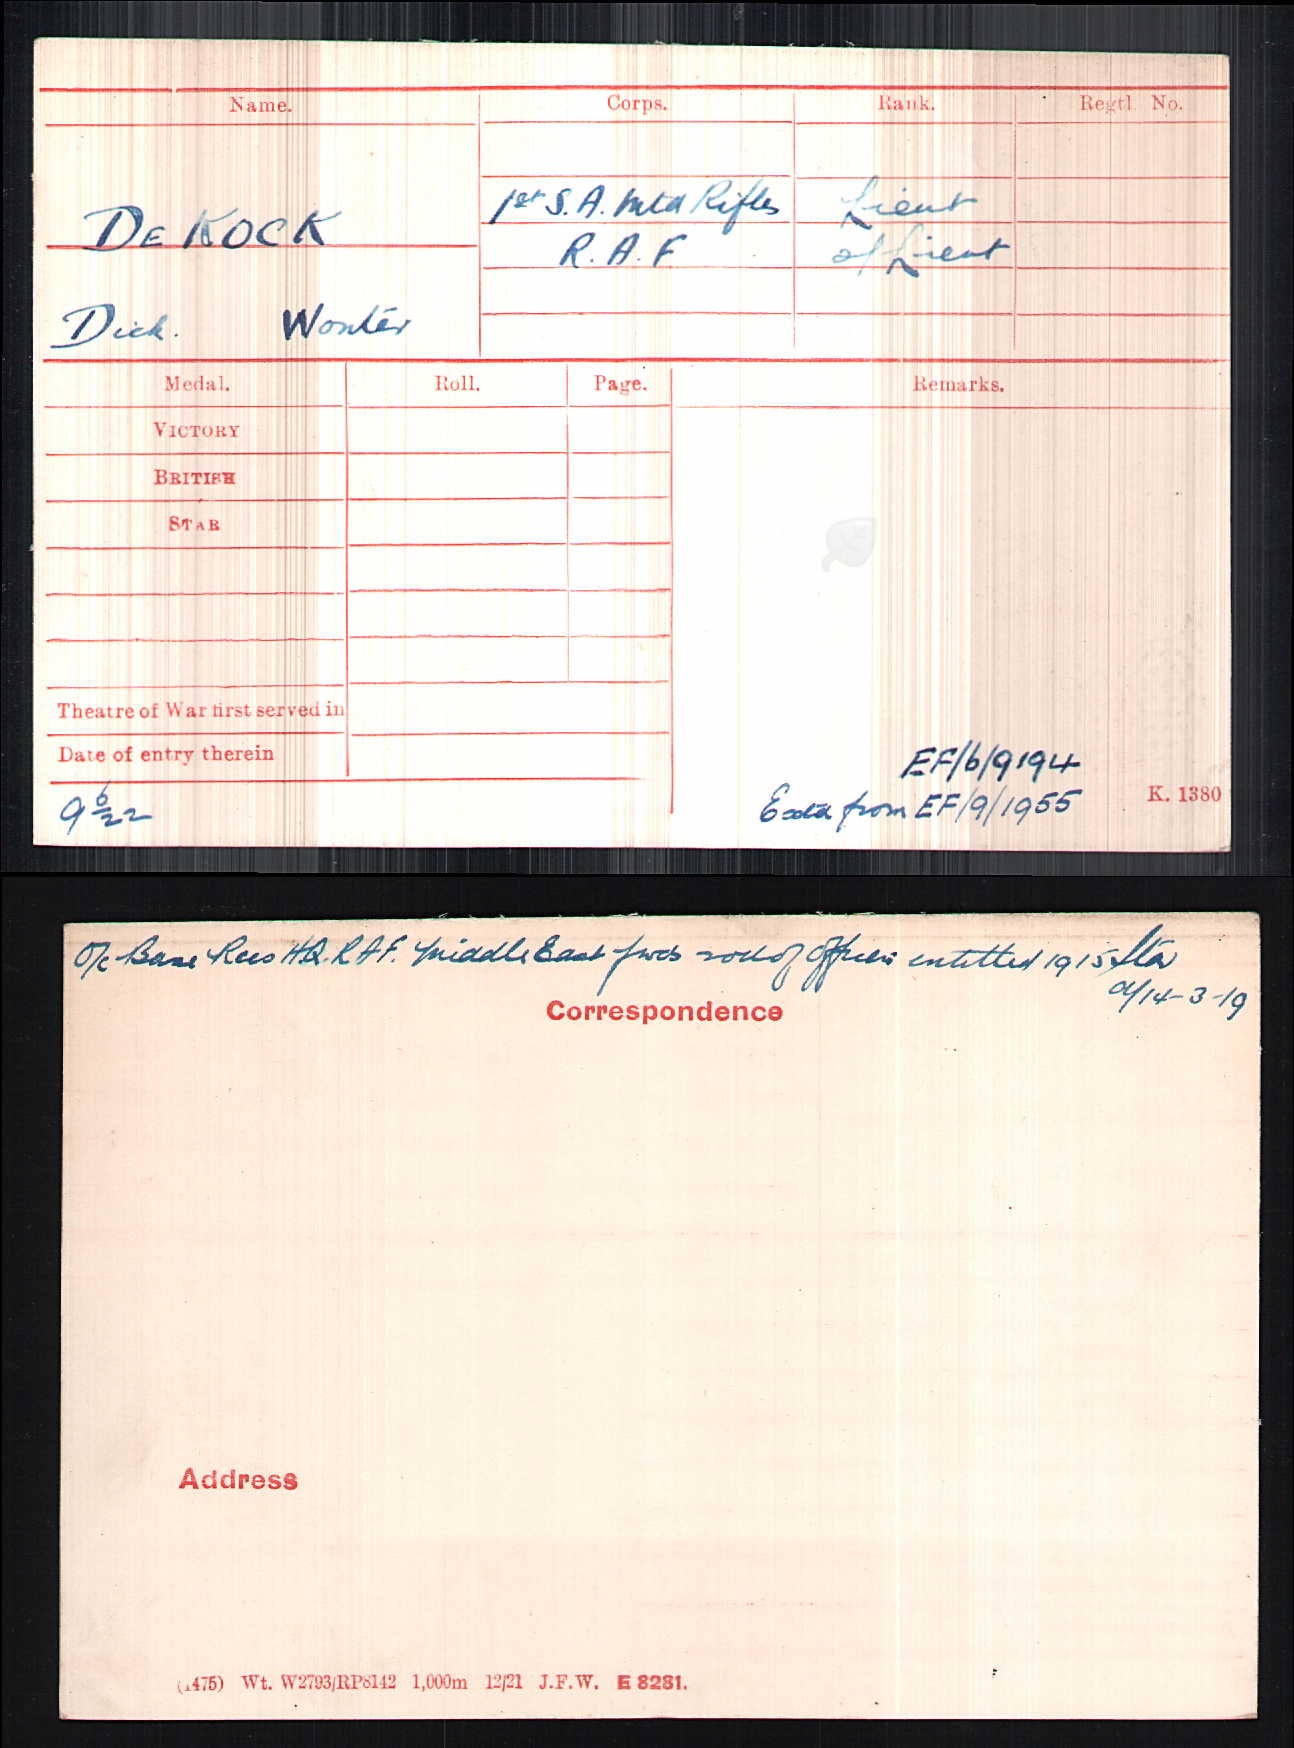 Name. Corps. Rank. Regtl. No.
1st S.A. Mtd Rifles Lieut
De KOCK
R.A.F. 2/Lieut
Dick. Wouter
Medal. Roll. Page. Remarks.
VICTORY
BRITISH
STAR
Theatre of War first served in
Date of entry therein
EF/6/9194
K. 1380
9 6/22
Extd from EF/9/1955
O/c Base Recs H.Q. R.A.F. Middle East fwds roll of Officers entitled 1915 Star
d/14-3-19
Correspondence
Address
(1475) Wt. W2793/RP8142 1,000m 12/21 J.F.W. E 8281.